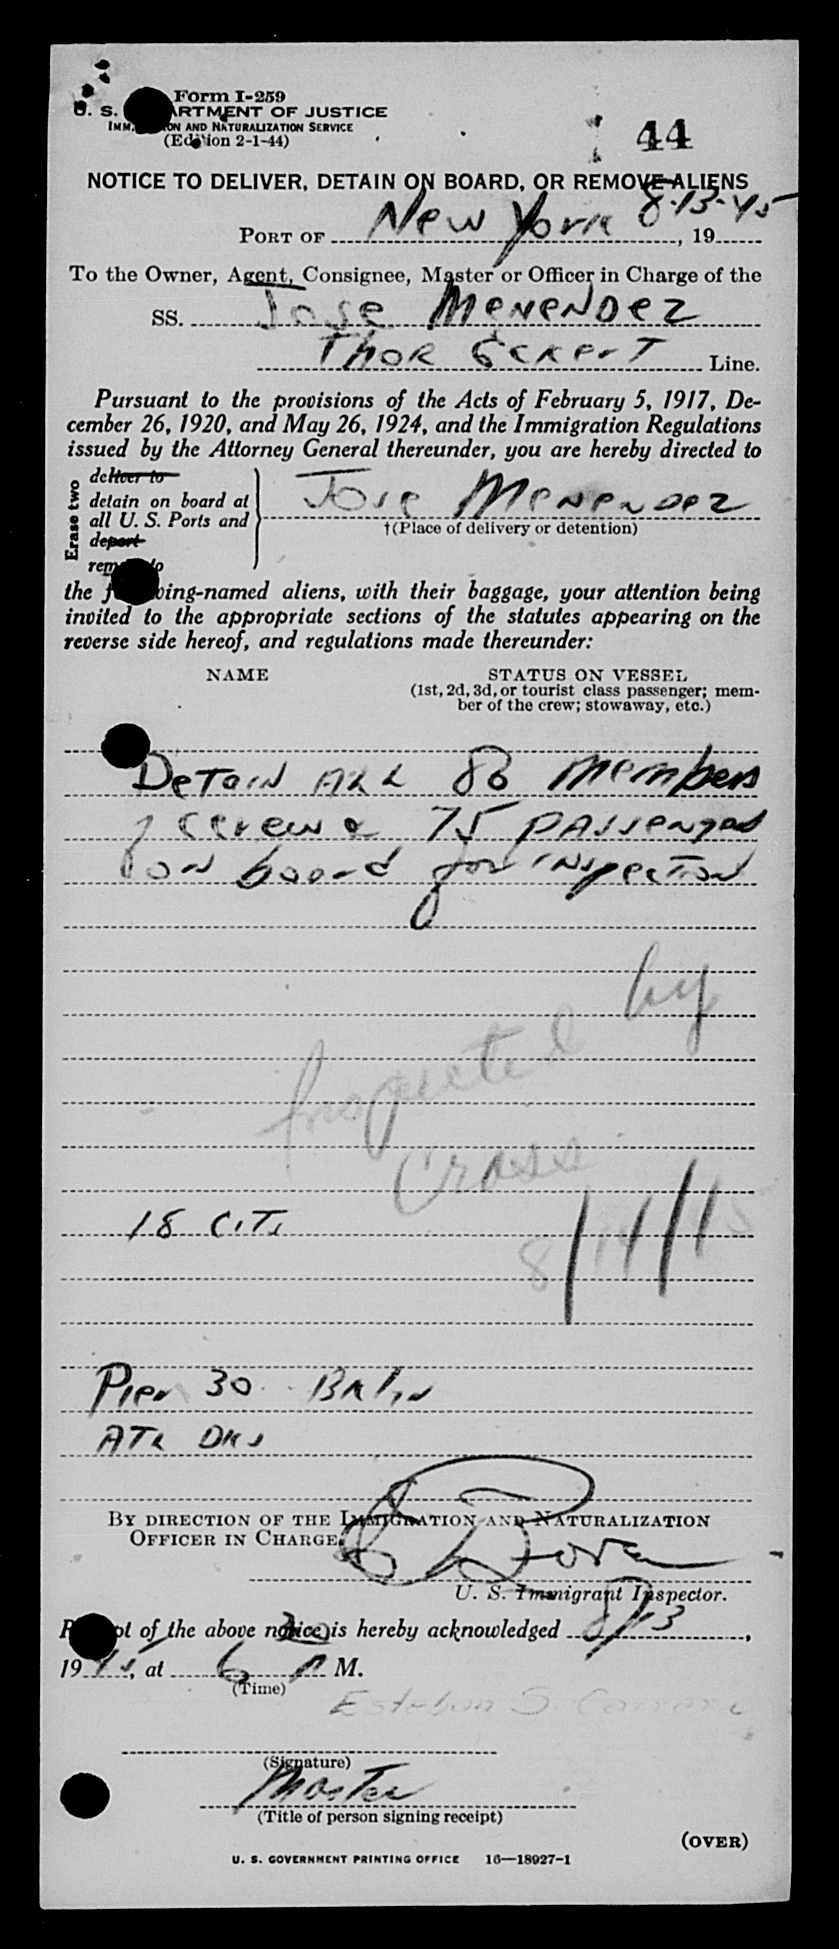 Form I-259
U. S. DEPARTMENT OF JUSTICE
IMMIGRATION AND NATURALIZATION SERVICE
(Edition 2-1-44)
44
NOTICE TO DELIVER, DETAIN ON BOARD, OR REMOVE ALIENS
8-13-45
PORT OF New York, 19
To the Owner, Agent, Consignee, Master or Officer in Charge of the
SS. Jose Menendez
Thor Eckert Line.
Pursuant to the provisions of the Acts of February 5, 1917, De-
cember 26, 1920, and May 26, 1924, and the Immigration Regulations
issued by the Attorney General thereunder, you are hereby directed to
Erase two
deliver to
detain on board at
all U. S. Ports and
deport
remove to
Jose Menendez
†(Place of delivery or detention)
the following-named aliens, with their baggage, your attention being
invited to the appropriate sections of the statutes appearing on the
reverse side hereof, and regulations made thereunder:
NAME
STATUS ON VESSEL
(1st, 2d, 3d, or tourist class passenger; mem-
ber of the crew; stowaway, etc.)
Detain ALL 80 members
of crew & 75 passengers
on board for inspection
Inspected by
Cross
8/14/45
18 C.T.
Pier 30 Bklyn
ATL DKS
BY DIRECTION OF THE IMMIGRATION AND NATURALIZATION
OFFICER IN CHARGE.
U. S. Immigrant Inspector.
Receipt of the above notice is hereby acknowledged 8/13,
1945, at 6 30 P M.
(Time)
Esteban S.
(Signature)
Master
(Title of person signing receipt)
(OVER)
U. S. GOVERNMENT PRINTING OFFICE 16—18927-1